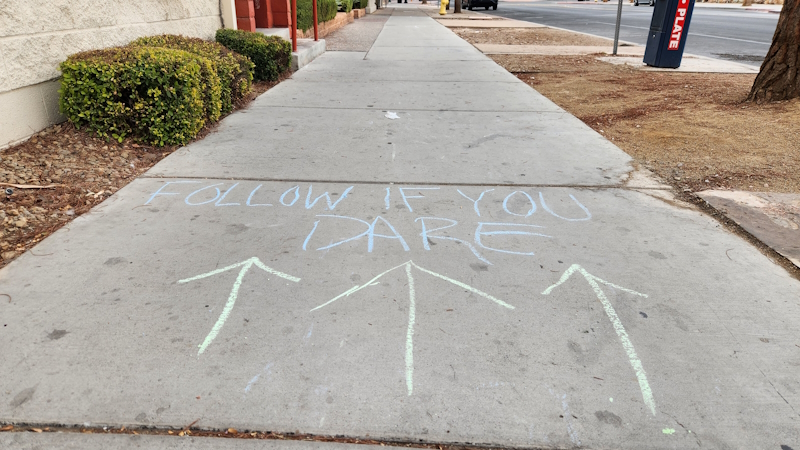 FOLLOW IF YOU
DARE
PLATE